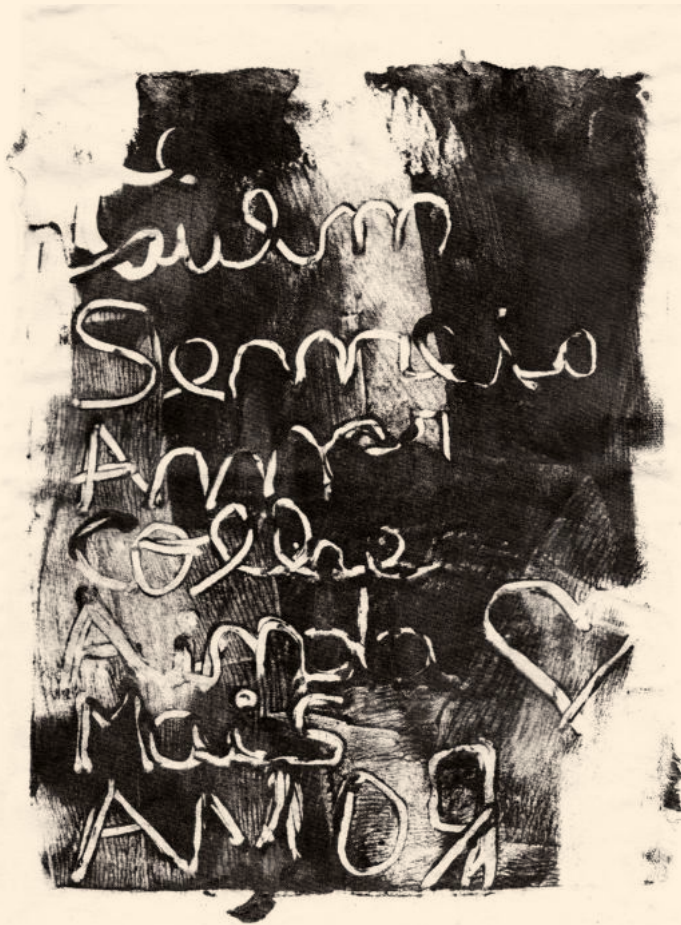 Quem
Semeia
Amor
Colhe
Ainda
Mais
AMOR